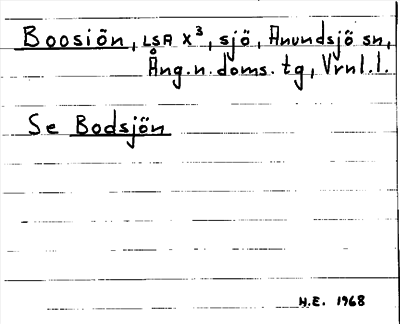 Boosiön, LSA X³, sjö, Anundsjö sn,
Ång.n.doms.tg, Vrnl.l.
Se Bodsjön
H.E. 1968